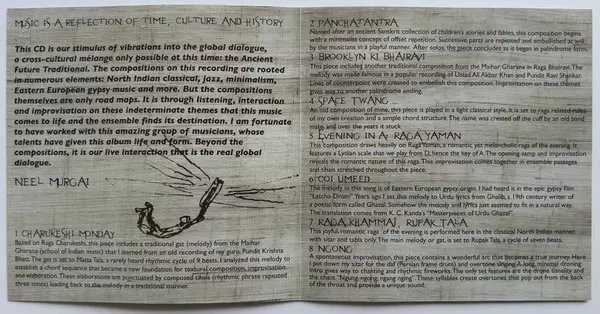 MUSIC IS A REFLECTION OF TIME, CULTURE AND HISTORY
This CD is our stimulus of vibrations into the global dialogue,
a cross-cultural mélange only possible at this time: the Ancient
Future Traditional. The compositions on this recording are rooted
in numerous elements: North Indian classical, jazz, minimalism,
Eastern European gypsy music and more. But the compositions
themselves are only road maps. It is through listening, interaction
and improvisation on these indeterminate themes that this music
comes to life and the ensemble finds its destination. I am fortunate
to have worked with this amazing group of musicians, whose
talents have given this album life and form. Beyond the
compositions, it is our live interaction that is the real global
dialogue.
NEEL MURGAI
1 CHARUKESHI MONDAY
Based on Raga Charukeshi, this piece includes a traditional gat (melody) from the Maihar
Gharana (school of Indian music) that I learned from an old recording of my guru, Pundit Krishna
Bhatt. The gat is set to Matta Tala, a rarely heard rhythmic cycle of 9 beats. I analyzed this melody to
establish a chord sequence that became a new foundation for textural composition, improvisation,
and elaboration. These elaborations are punctuated by composed tihais (rhythmic phrase repeated
three times) leading back to the melody in a traditional manner.
2 PANCHATANTRA
Named after an ancient Sanskrit collection of children's stories and fables, this composition begins
with a minimalist concept of offset repetition. Successive parts are repeated and embellished at will
by the musicians in a playful manner. After solos, the piece concludes as it began in palindrome form.
3 BROOKLYN KI BHAIRAVI
This piece includes another traditional composition from the Maihar Gharana in Raga Bhairavi. The
melody was made famous in a popular recording of Ustad Ali Akbar Khan and Pundit Ravi Shankar.
Lines of counterpoint were created to embellish this composition. Improvisation on these themes
gives way to another palindrome ending.
4 SPACE TWANG
An old composition of mine, this piece is played in a light classical style. It is set to raga related rules
of my own creation and a simple chord structure. The name was created off the cuff by an old band
mate, and over the years it stuck.
5 EVENING IN A: RAGA YAMAN
This composition draws heavily on Raga Yaman, a romantic yet melancholic raga of the evening. It
features a Lydian scale that we play from D, hence the key of A. The opening vamp and improvisation
reveal the romantic nature of this raga. This improvisation comes together in ensemble passages
and tihais stretched throughout the piece.
6 COI UMEED
The melody in this song is of Eastern European gypsy origin. I had heard it in the epic gypsy film
"Latcho Drom". Years ago I set this melody to Urdu lyrics from Ghalib, a 19th century writer of
a poetic form called Ghazal. Somehow the melody and lyrics just seemed to fit in a natural way.
The translation comes from K. C. Kanda's "Masterpieces of Urdu Ghazal".
7 RAGA KHAMMAJ, RUPAK TALA
This joyful romantic raga of the evening is performed here in the classical North Indian manner,
with sitar and tabla only. The main melody or gat, is set to Rupak Tala, a cycle of seven beats.
8 NGONG
A spontaneous improvisation, this piece contains a wonderful arc that becomes a true journey. Here
I put down my sitar for the daf (Persian frame drum) and overtone singing. A long, minimal droning
intro gives way to chanting and rhythmic fireworks. The only set features are the drone tonality and
the chant. "Ngung-ngong ngang-nging". These syllables create overtones that pop out from the back
of the throat and provide a unique sound.